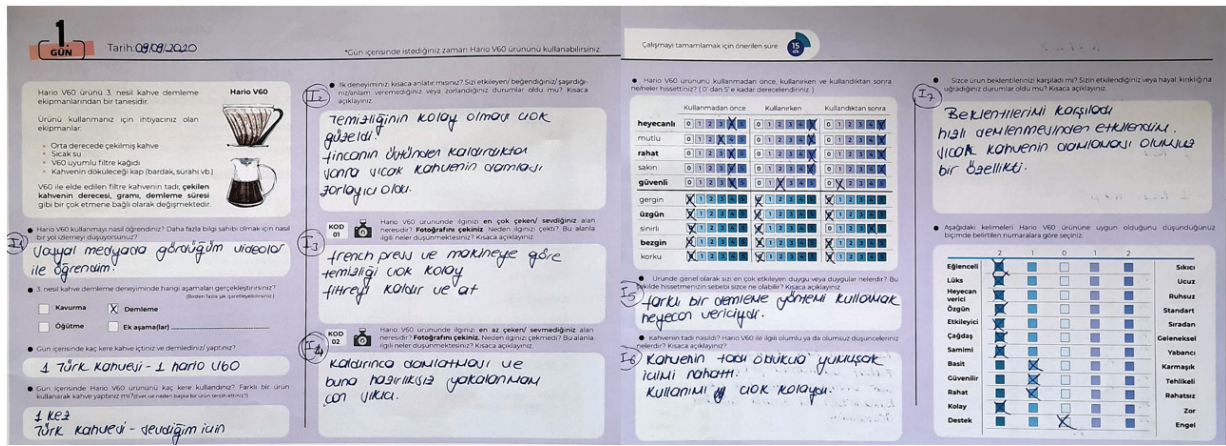 1.
GÜN
Tarih: 09/09/2020
*Gün içerisinde istediğiniz zaman Hario V60 ürününü kullanabilirsiniz.
Hario V60 ürünü 3. nesil kahve demleme
ekipmanlarından bir tanesidir.
Ürünü kullanmanız için ihtiyacınız olan
ekipmanlar:
Orta derecede çekilmiş kahve
Sıcak su
V60 uyumlu filtre kağıdı
Kahvenin döküleceği kap (bardak, sürahi vb.)
V60 ile elde edilen filtre kahvenin tadı; çekilen
kahvenin derecesi, gramı, demleme süresi
gibi bir çok etmene bağlı olarak değişmektedir.
Hario V60
Hario V60 kullanmayı nasıl öğrendiniz? Daha fazla bilgi sahibi olmak için nasıl
bir yol izlemeyi düşüyorsunuz?
I1
sosyal medyada gördüğüm videolar
ile öğrendim.
3. nesil kahve demleme deneyiminde hangi aşamaları gerçekleştirirsiniz?
(Birden fazla şık işaretleyebilirsiniz.)
Kavurma
X Demleme
Öğütme
Ek aşama(lar)
Gün içerisinde kaç kere kahve içtiniz ve demlediniz/ yaptınız?
1 Türk kahvesi - 1 hario V60
Gün içerisinde Hario V60 ürününü kaç kere kullandınız? Farklı bir ürün
kullanarak kahve yaptınız mı?
1 kez
Türk kahvesi - sevdiğim için
I2
İlk deneyiminizi kısaca anlatır mısınız? Sizi etkileyen/ beğendiğiniz/ şaşırdığı-
nız/anlam veremediğiniz veya zorlandığınız durumlar oldu mu? Kısaca
açıklayınız.
Temizliğinin kolay olması çok
güzeldi.
fincanın üstünden kaldırdıktan
sonra sıcak kahvenin damlaması
zorlayıcı oldu.
KOD
01
Hario V60 ürününde ilginizi en çok çeken/ sevdiğiniz alan
neresidir? Fotoğrafını çekiniz. Neden ilginizi çekti? Bu alanla
ilgili neler düşünmektesiniz? Kısaca açıklayınız.
I3
french press ve makineye göre
temizliği çok kolay
filtreyi kaldır ve at
KOD
02
Hario V60 ürününde ilginizi en az çeken/ sevmediğiniz alan
neresidir? Fotoğrafını çekiniz. Neden ilginizi çekmedi? Bu alanla
ilgili neler düşünmektesiniz? Kısaca açıklayınız.
I4
kaldırınca damlatması ve
buna hazırlıksız yakalanmam
can sıkıcı.
Çalışmayı tamamlamak için önerilen süre
15
dk
Hario V60 ürününü kullanmadan önce, kullanırken ve kullandıktan sonra
neler hissettiniz? ( 0' dan 5' e kadar derecelendiriniz )
Kullanmadan önce Kullanırken Kullandıktan sonra
heyecanlı
mutlu
rahat
sakin
güvenli
gergin
üzgün
sinirli
bezgin
korku
Üründe genel olarak sizi en çok etkileyen duygu veya duygular nelerdir? Bu
şekilde hissetmenizin sebebi sizce ne olabilir? Kısaca açıklayınız.
I5
farklı bir demleme yöntemi kullanmak
heyecan vericiydi.
Kahvenin tadı nasıldı? Hario V60 ile ilgili olumlu ya da olumsuz düşünceleriniz
nelerdir? Kısaca açıklayınız.
I6
kahvenin tadı oldukça yumuşak
içimi rahattı.
kullanımı çok kolaydı.
I7
Sizce ürün beklentilerinizi karşıladı mı? Sizin etkilendiğiniz veya hayal kırıklığına
uğradığınız durumlar oldu mu? Kısaca açıklayınız.
Beklentilerimi karşıladı
hızlı demlenmesinden etkilendim.
sıcak kahvenin damlaması olumsuz
bir özellikti.
Aşağıdaki kelimeleri Hario V60 ürününe uygun olduğunu düşündüğünüz
biçimde belirtilen numaralara göre seçiniz.
2 1 0 1 2
Eğlenceli Sıkıcı
Lüks Ucuz
Heyecan
verici Ruhsuz
Özgün Standart
Etkileyici Sıradan
Çağdaş Geleneksel
Samimi Yabancı
Basit Karmaşık
Güvenilir Tehlikeli
Rahat Rahatsız
Kolay Zor
Destek Engel